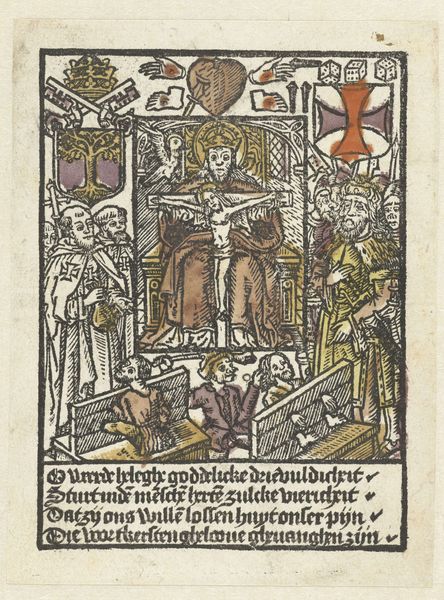 O waerde heleghe goddelicke drievuldicheit
Stuert inde mēsche herte zulcke viericheit
Datzij ons willē lossen huut onser pijn
Die voor tkersten ghelooue gheuanghen zijn